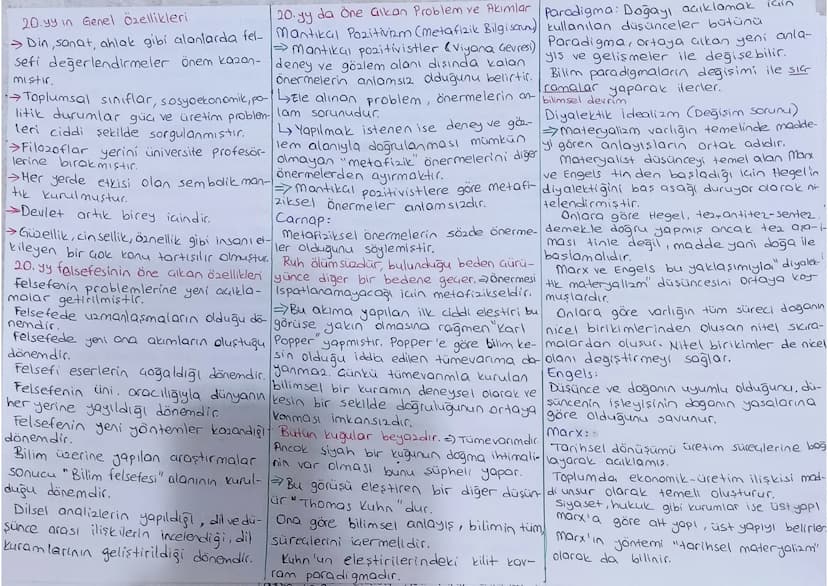 20.yy ın Genel Özellikleri
→ Din, sanat, ahlak gibi alanlarda fel-
sefi değerlendirmeler önem kazan-
mıştır.
→ Toplumsal sınıflar, sosyoekonomik, po-
litik durumlar güç ve üretim problem-
leri ciddi şekilde sorgulanmıştır.
→ Filozoflar yerini üniversite profesör-
lerine bırakmıştır.
→ Her yerde etkisi olan sembolik man-
tık kurulmuştur.
→ Devlet artık birey içindir.
→ Güzellik, cinsellik, öznellik gibi insanı et-
kileyen bir çok konu tartışılır olmuştur.
20.yy felsefesinin öne çıkan özellikleri
Felsefenin problemlerine yeni açıkla-
malar getirilmiştir.
Felsefede uzmanlaşmaların olduğu dö-
nemdir.
Felsefede yeni ana akımların oluştuğu
dönemdir.
Felsefi eserlerin çoğaldığı dönemdir.
Felsefenin üni. aracılığıyla dünyanın
her yerine yayıldığı dönemdir.
Felsefenin yeni yöntemler kazandığı
dönemdir.
Bilim üzerine yapılan araştırmalar
sonucu "Bilim felsefesi" alanının kurul-
duğu dönemdir.
Dilsel analizlerin yapıldığı, dil ve dü-
şünce arası ilişkilerin incelendiği, dil
kuramlarının geliştirildiği dönemdir.
20.yy da Öne Çıkan Problem ve Akımlar
Mantıkçı Pozitivizm (Metafizik Bilgisorun)
⇒ Mantıkçı pozitivistler (Viyana Çevresi)
deney ve gözlem alanı dışında kalan
önermelerin anlamsız olduğunu belirtir.
↳ Ele alınan problem, önermelerin an-
lam sorunudur.
↳ Yapılmak istenen ise deney ve göz-
lem alanıyla doğrulanması mümkün
olmayan "metafizik" önermelerini diğer
önermelerden ayırmaktır.
⇒ Mantıkçı pozitivistlere göre metafi-
ziksel önermeler anlamsızdır.
Carnap:
Metafiziksel önermelerin sözde önerme-
ler olduğunu söylemiştir.
Ruh ölümsüzdür, bulunduğu beden çürü-
yünce diğer bir bedene geçer. ⇒ Önermesi
ispatlanamayacağı için metafizikseldir.
⇒ Bu akıma yapılan ilk ciddi eleştiri bu
görüşe yakın olmasına rağmen "Karl
Popper" yapmıştır. Popper'e göre bilim ke-
sin olduğu iddia edilen tümevarıma da-
yanmaz. Çünkü tümevarımla kurulan
bilimsel bir kuramın deneysel olarak ve
kesin bir şekilde doğruluğunun ortaya
konması imkansızdır.
Bütün kuğular beyazdır. ⇒ Tümevarımdır.
Ancak siyah bir kuğunun doğma ihtimali-
nin var olması bunu şüpheli yapar.
⇒ Bu görüşü eleştiren bir diğer düşün-
ür "Thomas Kuhn" dur.
Ona göre bilimsel anlayış, bilimin tüm
süreçlerini içermelidir.
Kuhn'un eleştirilerindeki kilit kav-
ram paradigmadır.
Paradigma: Doğayı açıklamak için
kullanılan düşünceler bütünü
Paradigma, ortaya çıkan yeni anla-
yış ve gelişmeler ile değişebilir.
Bilim paradigmaların değişimi ile sıç-
ramalar yaparak ilerler.
bilimsel devrim
Diyalektik idealizm (Değişim sorunu)
⇒ Materyalizm varlığın temelinde madde-
yi gören anlayışların ortak adıdır.
Materyalist düşünceyi temel alan Marx
ve Engels tinden başladığı için Hegel'in
diyalektiğini baş aşağı duruyor olarak ni-
telendirmiştir.
Onlara göre Hegel, tez+antitez=sentez
demekle doğru yapmış ancak tez aşa-
ması tinle değil, madde yani doğa ile
başlamalıdır.
Marx ve Engels bu yaklaşımıyla "diyalek-
tik materyalizm" düşüncesini ortaya koy-
muşlardır.
Onlara göre varlığın tüm süreci doğanın
nicel birikimlerinden oluşan nitel sıçra-
malardan oluşur. Nitel birikimler de nicel
olanı değiştirmeyi sağlar.
Engels:
Düşünce ve doğanın uyumlu olduğunu, dü-
şüncenin işleyişinin doğanın yasalarına
göre olduğunu savunur.
Marx:
Tarihsel dönüşümü üretim süreçlerine bağ-
layarak açıklamış.
Toplumda ekonomik-üretim ilişkisi mad-
di unsur olarak temeli oluşturur.
Siyaset, hukuk gibi kurumlar ise üst yapı
Marx'a göre alt yapı, üst yapıyı belirler.
Marx'ın yöntemi "tarihsel materyalizm"
olarak da bilinir.